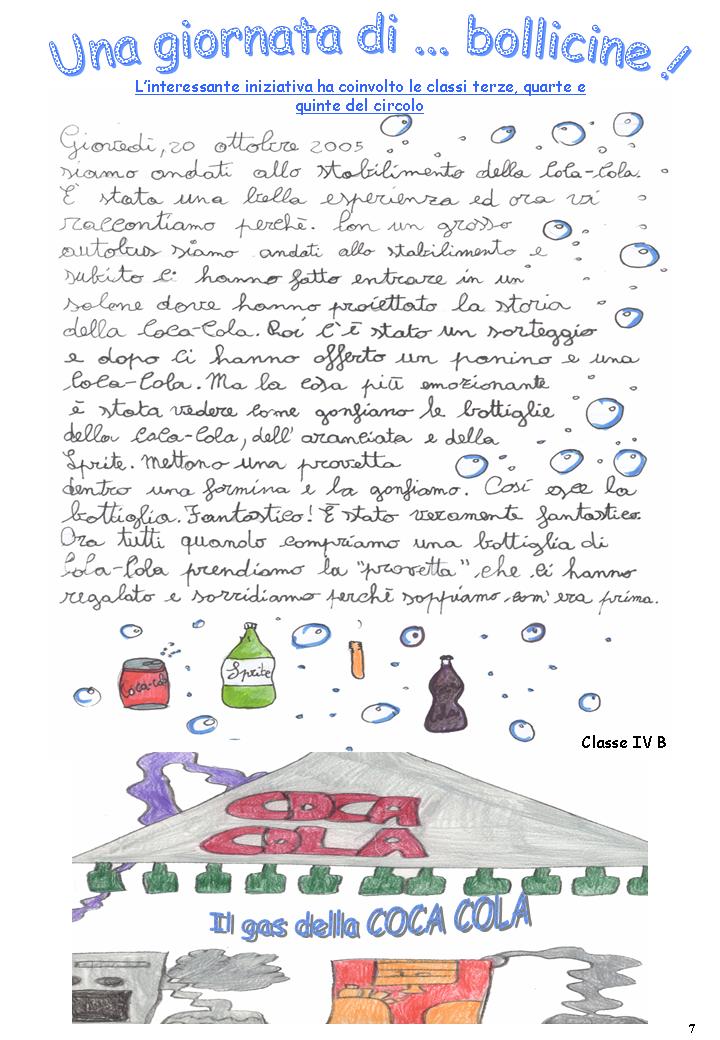 Una giornata di ... bollicine !
L'interessante iniziativa ha coinvolto le classi terze, quarte e
quinte del circolo
Giovedì, 20 ottobre 2005
siamo andati allo stabilimento della Cola-Cola.
È stata una bella esperienza ed ora vi
raccontiamo perchè. Con un grosso
autobus siamo andati allo stabilimento e
subito ci hanno fatto entrare in un
salone dove hanno proiettato la storia
della Coca-Cola. Poi c'è stato un sorteggio
e dopo ci hanno offerto un panino e una
Coca-Cola. Ma la cosa più emozionante
è stata vedere come gonfiano le bottiglie
della Coca-Cola, dell'aranciata e della
Sprite. Mettono una provetta
dentro una formina e la gonfiano. Così esce la
bottiglia. Fantastico! È stato veramente fantastico.
Ora tutti quando compriamo una bottiglia di
Cola-Cola prendiamo la "provetta", che ci hanno
regalato e sorridiamo perchè sappiamo com'era prima.
Coca-cola
Sprite
Classe IV B
COCA
COLA
Il gas della COCA COLA
7